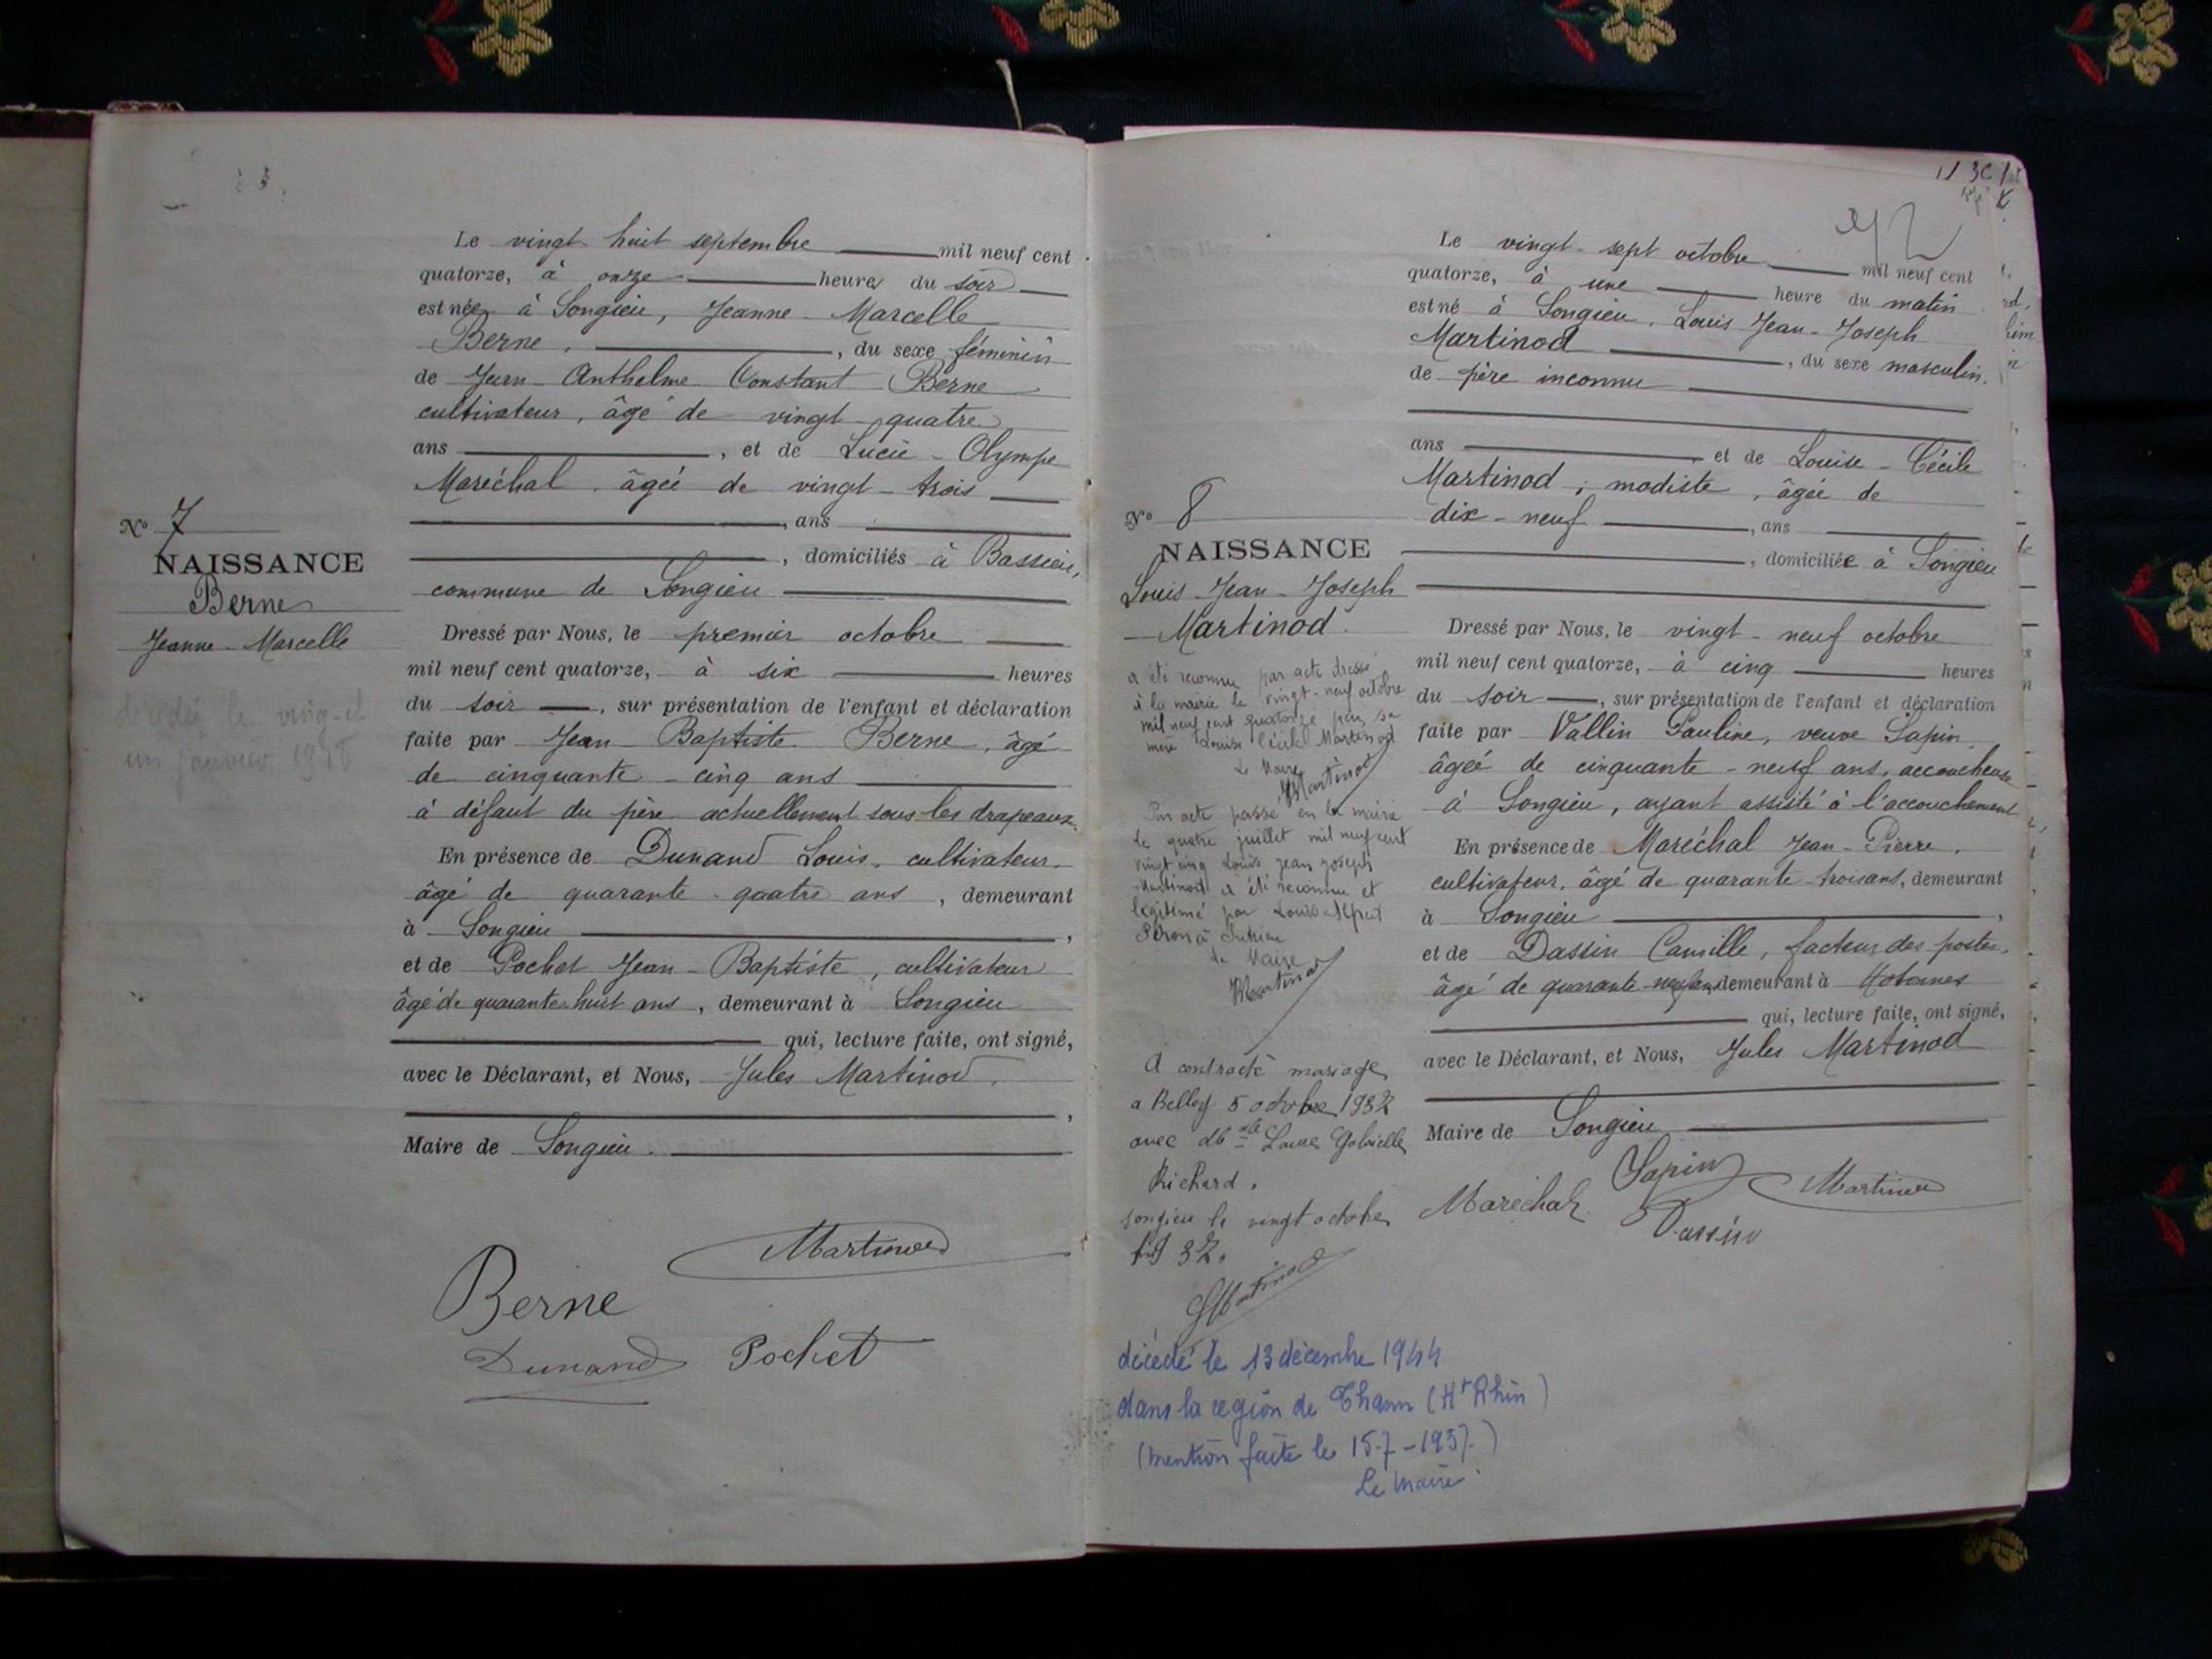 Le vingt-huit septembre mil neuf cent
quatorze, à onze heures du soir
est née à Songieu, Jeanne-Marcelle
Berne, , du sexe féminin
de Jean-Anthelme Constant Berne
cultivateur, âgé de vingt-quatre
ans , et de Lucie-Olympe
Maréchal, âgée de vingt-trois
, ans
, domiciliés à Bassieu,
commune de Songieu
Dressé par Nous, le premier octobre
mil neuf cent quatorze, à six heures
du soir , sur présentation de l'enfant et déclaration
faite par Jean-Baptiste Berne, âgé
de cinquante-cinq ans
à défaut du père actuellement sous les drapeaux.
En présence de Dunand Louis, cultivateur
âgé de quarante-quatre ans , demeurant
à Songieu ,
et de Pochet Jean-Baptiste, cultivateur
âgé de quarante-huit ans , demeurant à Songieu
qui, lecture faite, ont signé,
avec le Déclarant, et Nous, Jules Martinod,
,
Maire de Songieu.
Martinod
Berne
Dunand Pochet
N° 7
NAISSANCE
Berne
Jeanne-Marcelle
décédée le vingt-et
un janvier
Le vingt-sept octobre mil neuf cent
quatorze, à une heure du matin
est né à Songieu, Louis Jean-Joseph
Martinod , du sexe masculin.
de père inconnu
ans , et de Louise-Cécile
Martinod, modiste, âgée de
dix-neuf , ans
, domiciliée à Songieu
Dressé par Nous, le vingt-neuf octobre
mil neuf cent quatorze, à cinq heures
du soir , sur présentation de l'enfant et déclaration
faite par Vallin Pauline, veuve Sapin,
âgée de cinquante-neuf ans, accoucheuse
à Songieu, ayant assisté à l'accouchement
En présence de Maréchal Jean-Pierre,
cultivateur, âgé de quarante-trois ans, demeurant
à Songieu ,
et de Dassin Camille, facteur des postes,
âgé de quarante-neuf ans demeurant à Hotonnes
qui, lecture faite, ont signé,
avec le Déclarant, et Nous, Jules Martinod
Maire de Songieu
Sapin Martinod
Maréchal Dassin
N° 8
NAISSANCE
Louis-Jean-Joseph
Martinod.
a été reconnu par acte dressé
à la mairie le vingt-neuf octobre
mil neuf cent quatorze par sa
mère Louise Cécile Martinod
Le Maire
Martinod
Par acte passé en la mairie
le quatre juillet mil neuf cent
vingt cinq Louis Jean Joseph
Martinod a été reconnu et
légitimé par Louis Alfred
à
Le Maire
Martinod
A contracté mariage
a Belley 5 octobre 1932
avec Louise Gabrielle
Richard.
Songieu le vingt octobre
1932.
Martinod
décédé le 13 décembre 1944
dans la région de Thann (Ht Rhin)
(mention faite le 15-7-1957.)
Le Maire